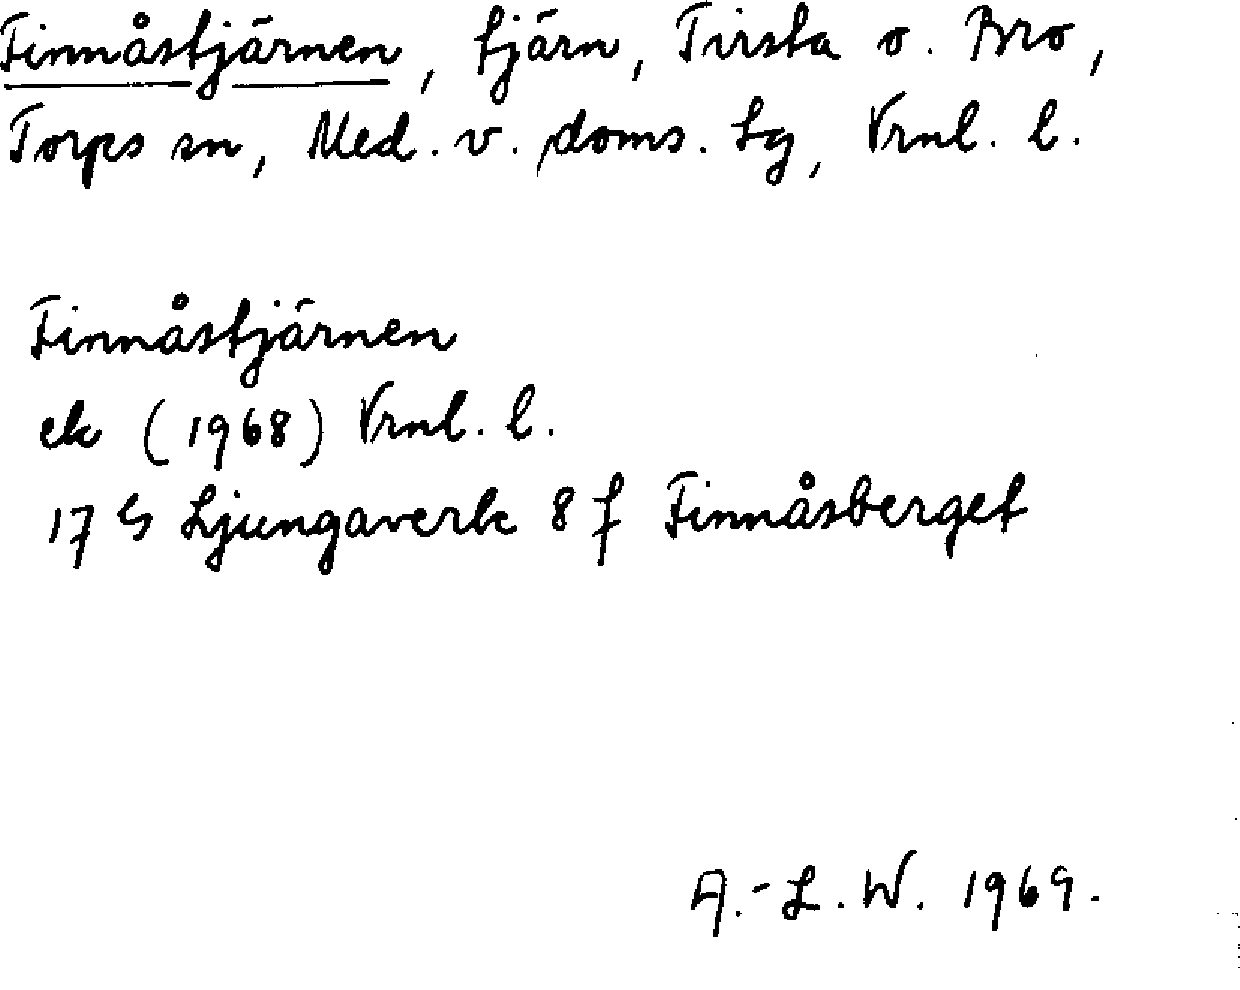 Finnåstjärnen, tjärn, Tirsta o. Bro,
Torps sn, Med. v. doms. tg, Vrnl. l.
Finnåstjärnen
ek (1968) Vrnl. l.
17 G Ljungaverk 8 f Finnåsberget
A.-L. W. 1969.